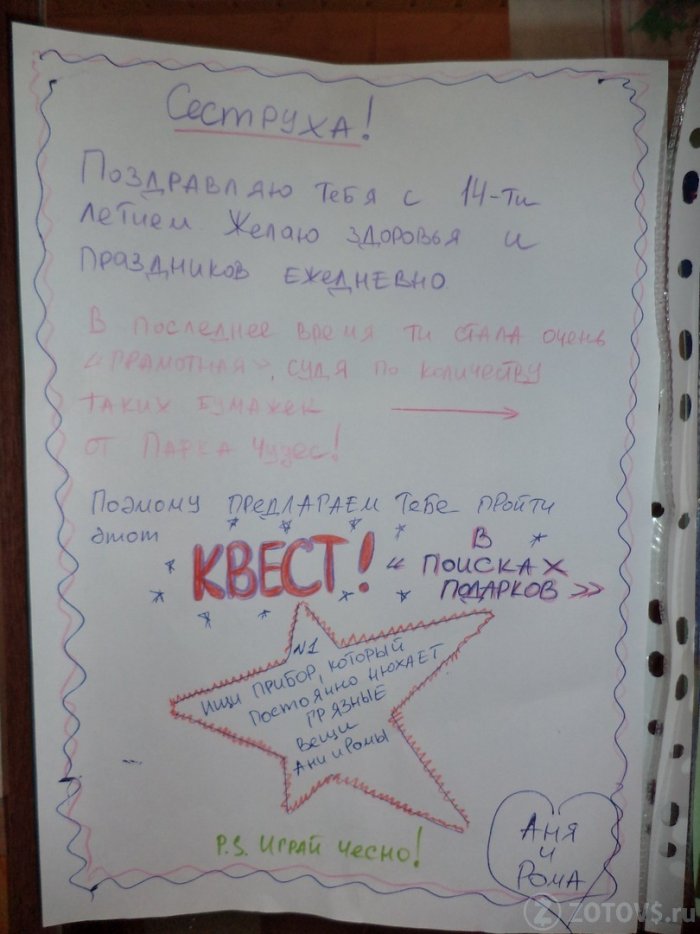 Сеструха!
Поздравляю тебя с 14-ти
летием Желаю здоровья и
праздников ежедневно
В последнее время ти стала очень
«грамотная», судя по количеству
таких бумажек
от Парка Чудес!
Поэтому предлагаем тебе пройти
этот
КВЕСТ! « В
ПОИСКАХ
ПОДАРКОВ »
№1
Ищи прибор, который
постоянно нюхает
грязные
вещи
Ани и Ромы
P.S. Играй чесно!
Аня
и
Рома
ZOTOV$.ru